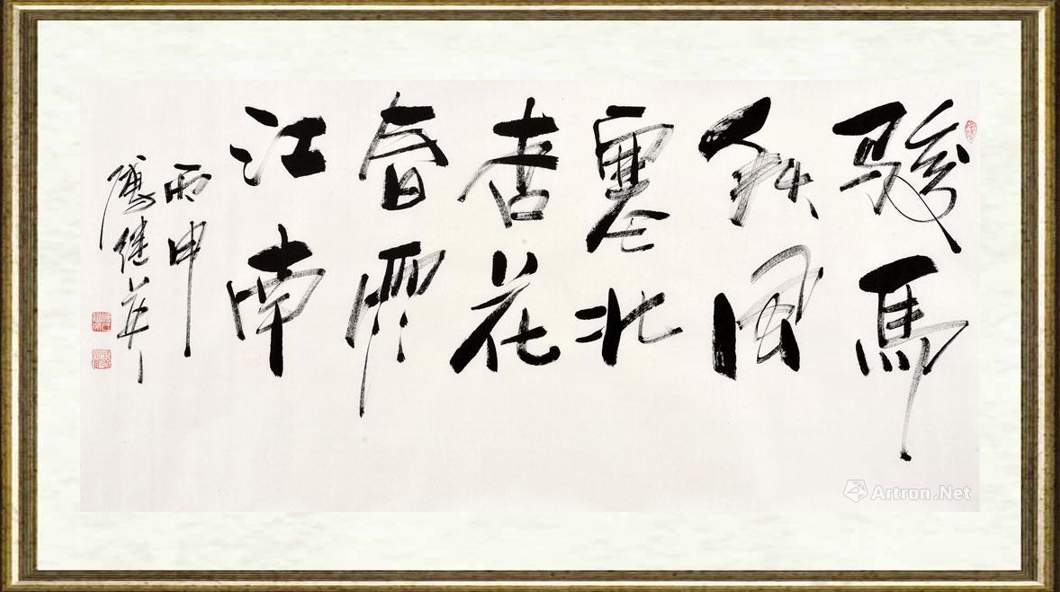 骏馬
秋风
塞北
杏花
春雨
江南
丙申
继英
Artron.Net